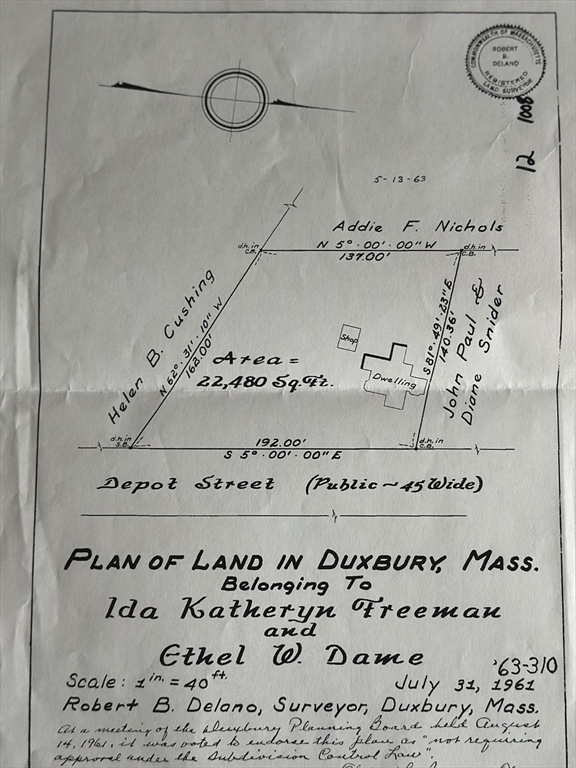 COMMONWEALTH OF MASSACHUSETTS
ROBERT
B.
DELANO
REGISTERED
LAND SURVEYOR
12 1008
5-13-63
Addie F. Nichols
N 5° 00' 00" W
137.00'
d.h. in
C.B.
d.h. in
C.B.
Helen B. Cushing
N 62° 31' 10" W
162.00'
S 81° 49' 23" E
140.36'
John Paul &
Diane Snider
Shop
Area =
22,480 Sq.Ft.
Dwelling
d.h. in
S.B.
192.00'
S 5° 00' 00" E
d.h. in
C.B.
Depot Street (Public ~ 45 Wide)
PLAN OF LAND IN DUXBURY, MASS.
Belonging To
Ida Katheryn Freeman
and
Ethel W. Dame
'63-310
Scale: 1 in. = 40 ft.
July 31, 1961
Robert B. Delano, Surveyor, Duxbury, Mass.
At a meeting of the Duxbury Planning Board held August
14, 1961, it was voted to endorse this plan as "not requiring
approval under the Subdivision Control Law".